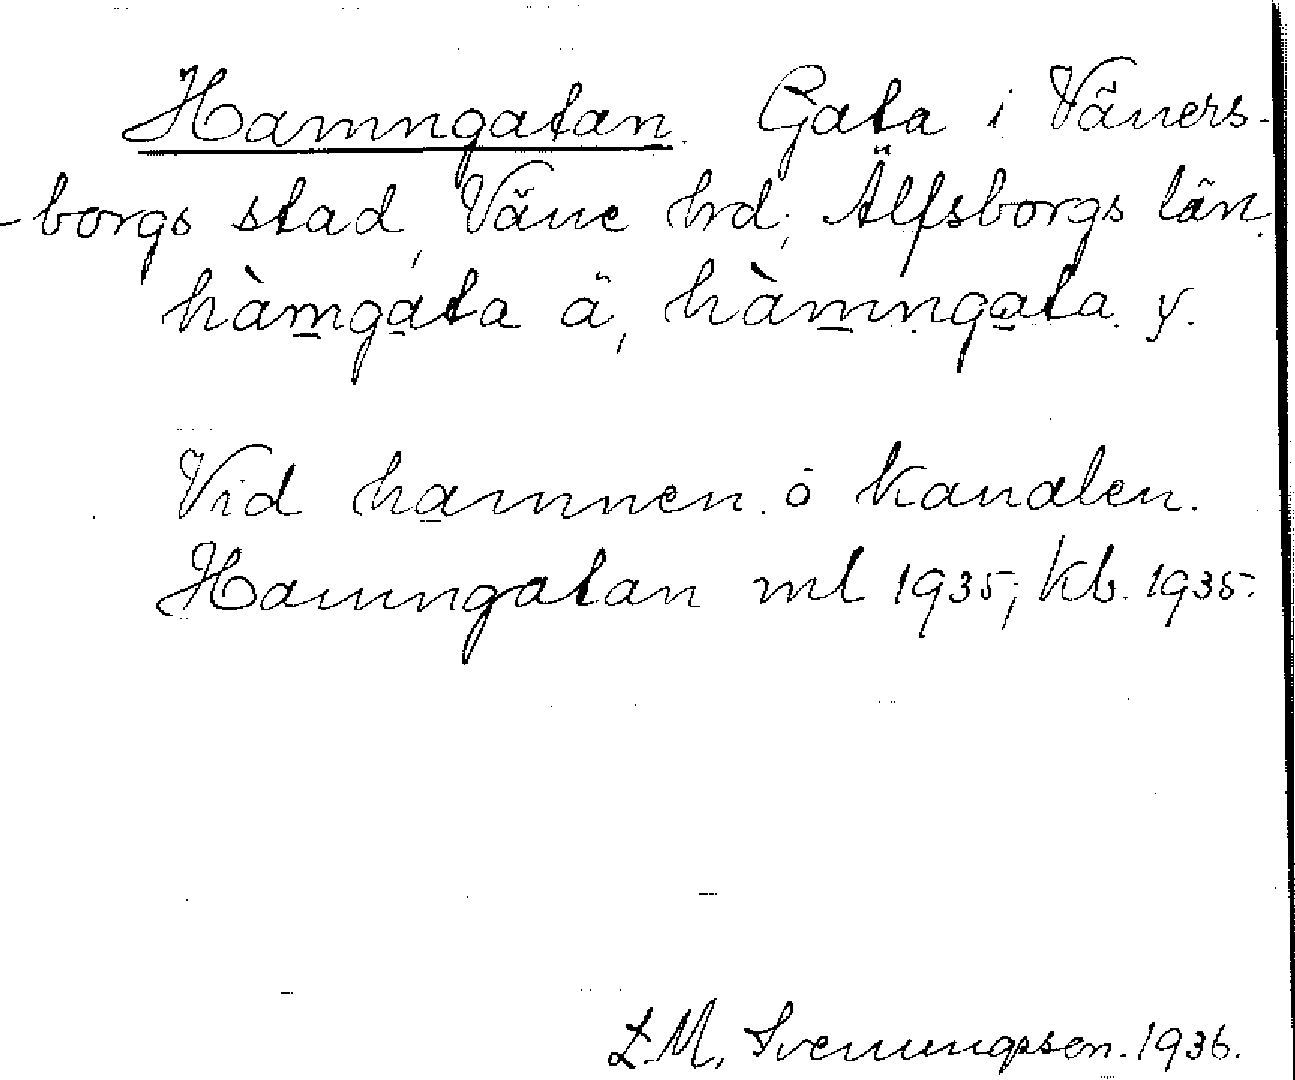 Hamngatan. Gata i Väners-
-borgs stad, Väne hd, Älfsborgs län.
hàmgata ä, hàmngata. y.
Vid hamnen. ö Kanalen.
Hamngatan ml 1935; Kb. 1935.
L.M. Svenungsson. 1936.